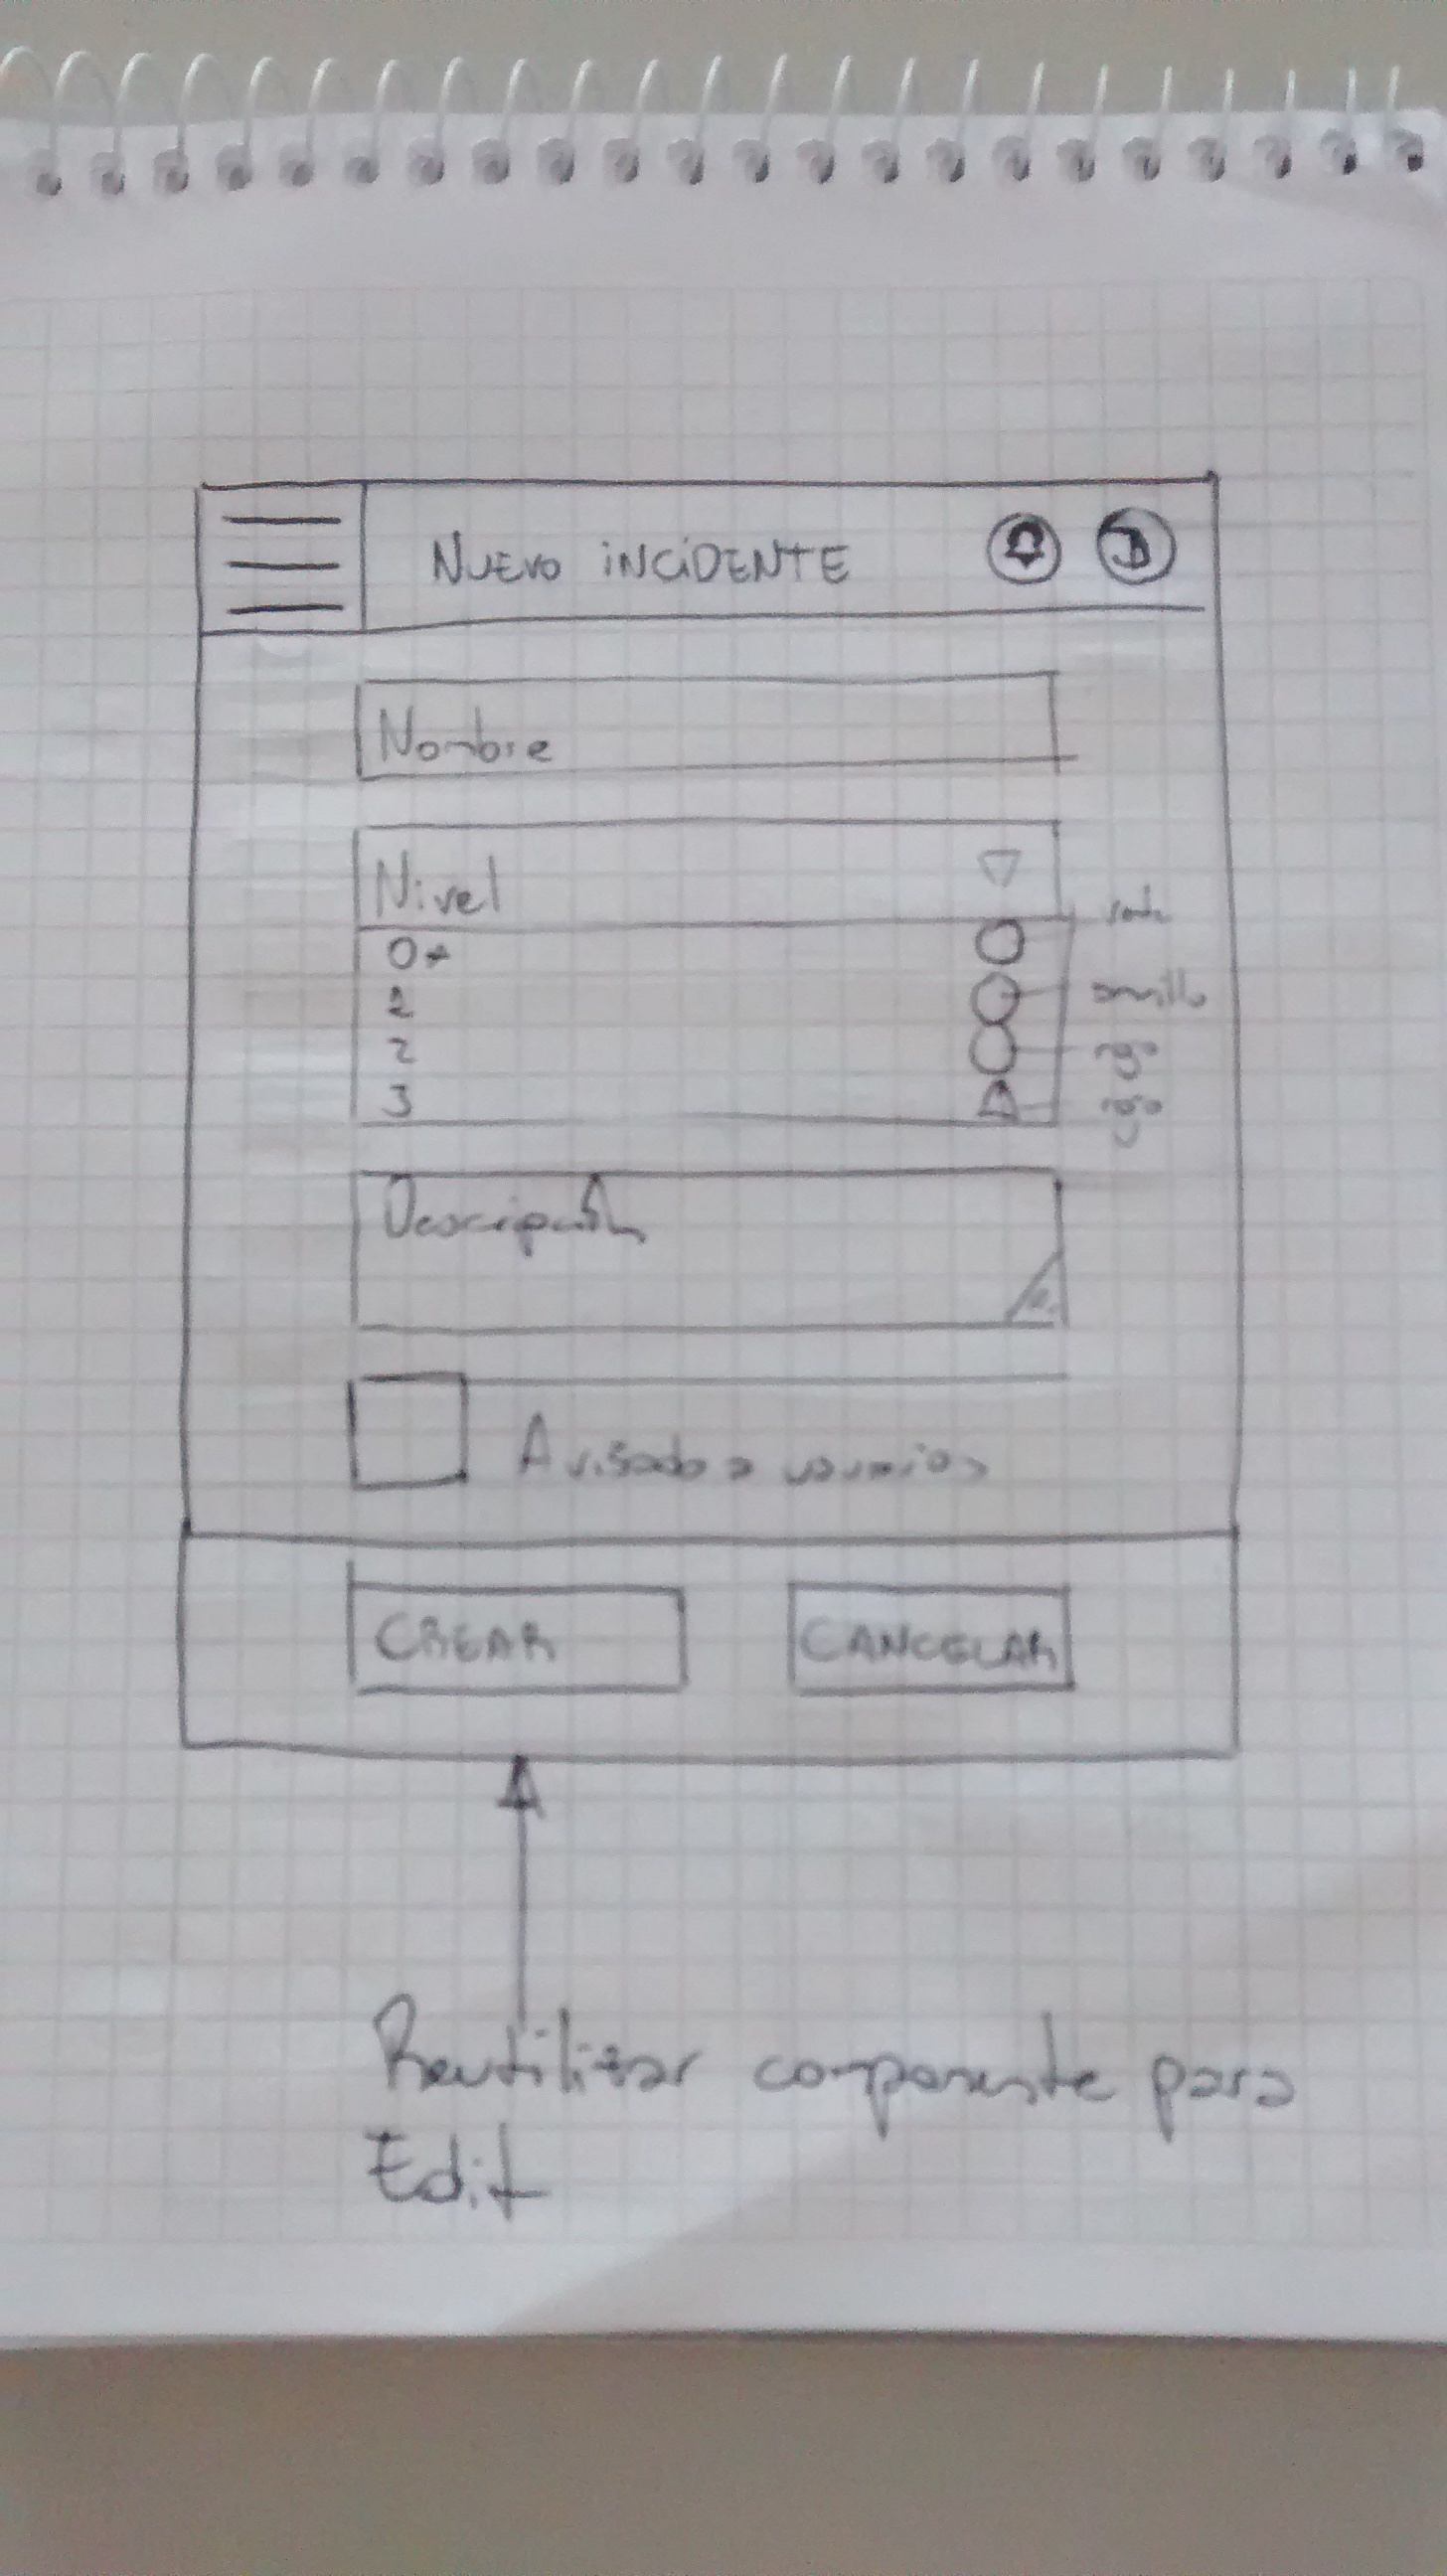 NUEVO INCIDENTE
Nombre
Nivel
0
amarillo
2
rojo
3
rojo
Descripción
Avisado a usuarios
CREAR CANCELAR
Reutilizar componente para
Edit